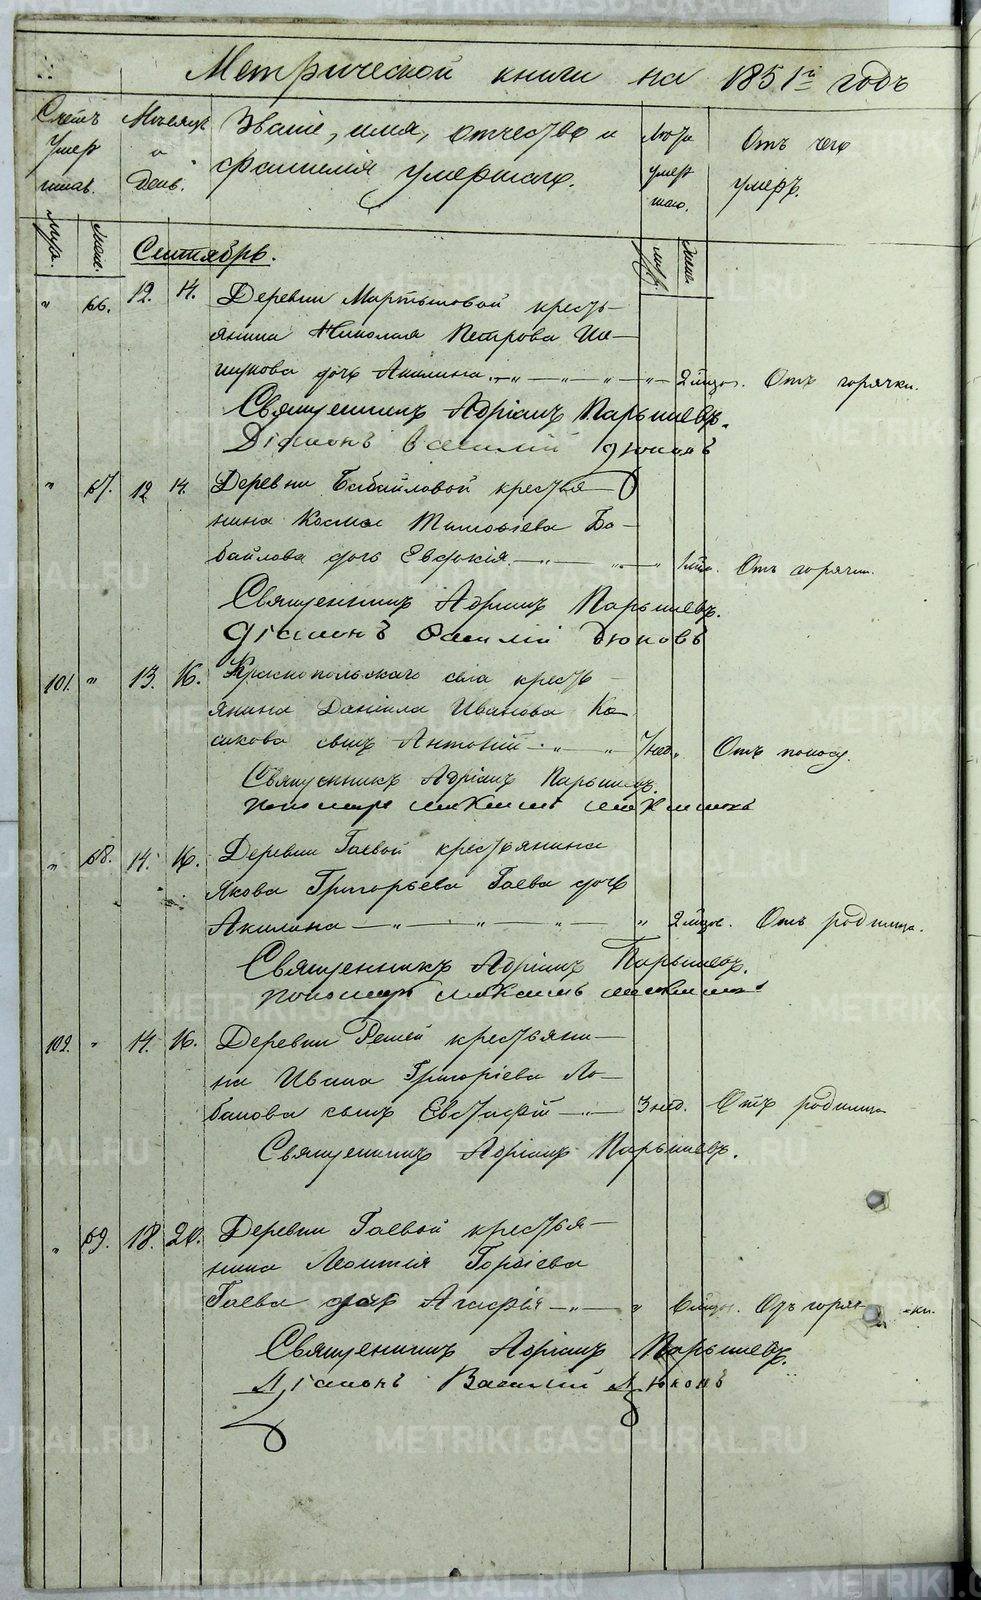 Метрической книги на 1851й годъ
Счетъ умершихъ.
Мѣсяцъ и День.
Званіе, имя, отчество и фамилія умершаго.
Лѣта умершаго.
Отъ чего умеръ.
муж. жен. Сентябрь. муж. жен.
" 66. 12. 14. Деревни Мартыновой кресть-
янина Николая Петрова
дочь Акилина " " " 2 мѣсяц. Отъ горячки.
Священникъ Адріанъ Парышевъ.
Діаконъ Василій Дюковъ
" 67. 12 14. Деревни Бабайловой крестья-
нина Космы Тимофіева Ба-
байлова дочь Евдокія " " Отъ горячки.
Священникъ Адріанъ Парышевъ.
Діаконъ Василій Дюковъ
101. " 13. 16. Краснопольскаго села кресть-
янина Даніила Иванова Ко-
сикова сынъ Антоній " " 7 нед. Отъ поносу.
Священникъ Адріанъ Парышевъ.
пономарь
" 68. 14. 16. Деревни Гаевой крестьянина
Якова Григорьева Гаева дочь
Акилина " " " " 2 мѣсяц. Отъ родимца.
Священникъ Адріанъ Парышевъ.
пономарь
102. " 14. 16. Деревни Решей крестьяни-
на Ивана Григоріева Ло-
банова сынъ Евстафій " 3 нед. Отъ родимца
Священникъ Адріанъ Парышевъ.
" 69. 18. 20. Деревни Гаевой крестья-
нина Леонтія Гордіева
Гаева дочь Агафія " " 6 мѣсяц. Отъ горячки.
Священникъ Адріанъ Парышевъ.
Діаконъ Василій Дюковъ
METRIKI.GASO-URAL.RU